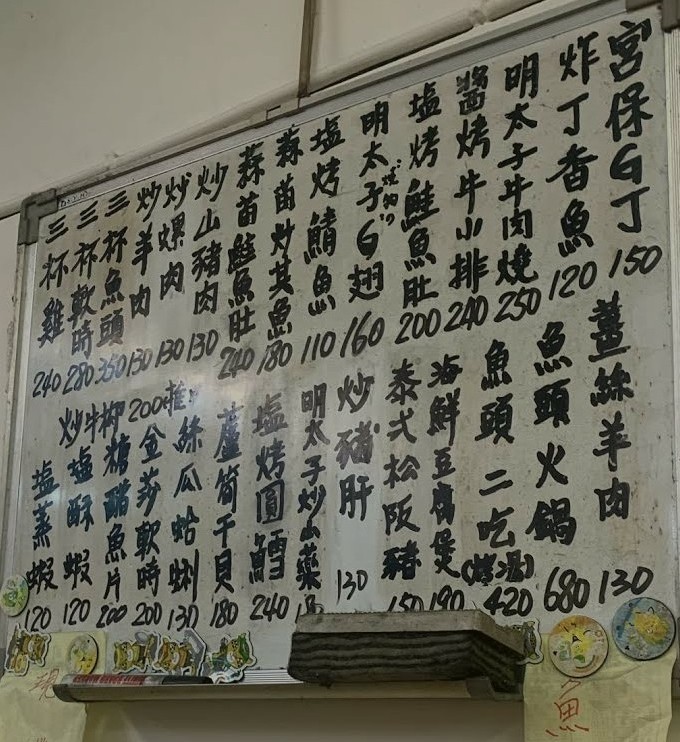 宮保G丁 150
炸丁香魚 120
明太子牛肉燒 250
醬烤牛小排 240
塩烤鮭魚肚 200
明太子G翅 160
塩烤鯖魚 110
蒜苗炒其魚 180
蒜苗鮭魚肚 240
炒山豬肉 130
炒螺肉 130
炒羊肉 130
三杯魚頭 350
三杯軟時 280
三杯雞 240
薑絲羊肉 130
魚頭火鍋 680
魚頭二吃 420
海鮮豆腐煲 190
泰式松阪豬 150
炒豬肝 130
明太子炒山藥
塩烤圓鱈 240
蘆筍干貝 180
絲瓜蛤蜊 130
金莎軟時 200
糖醋魚片 200
塩酥蝦 120
塩蒸蝦 120
炒牛柳 200
魚